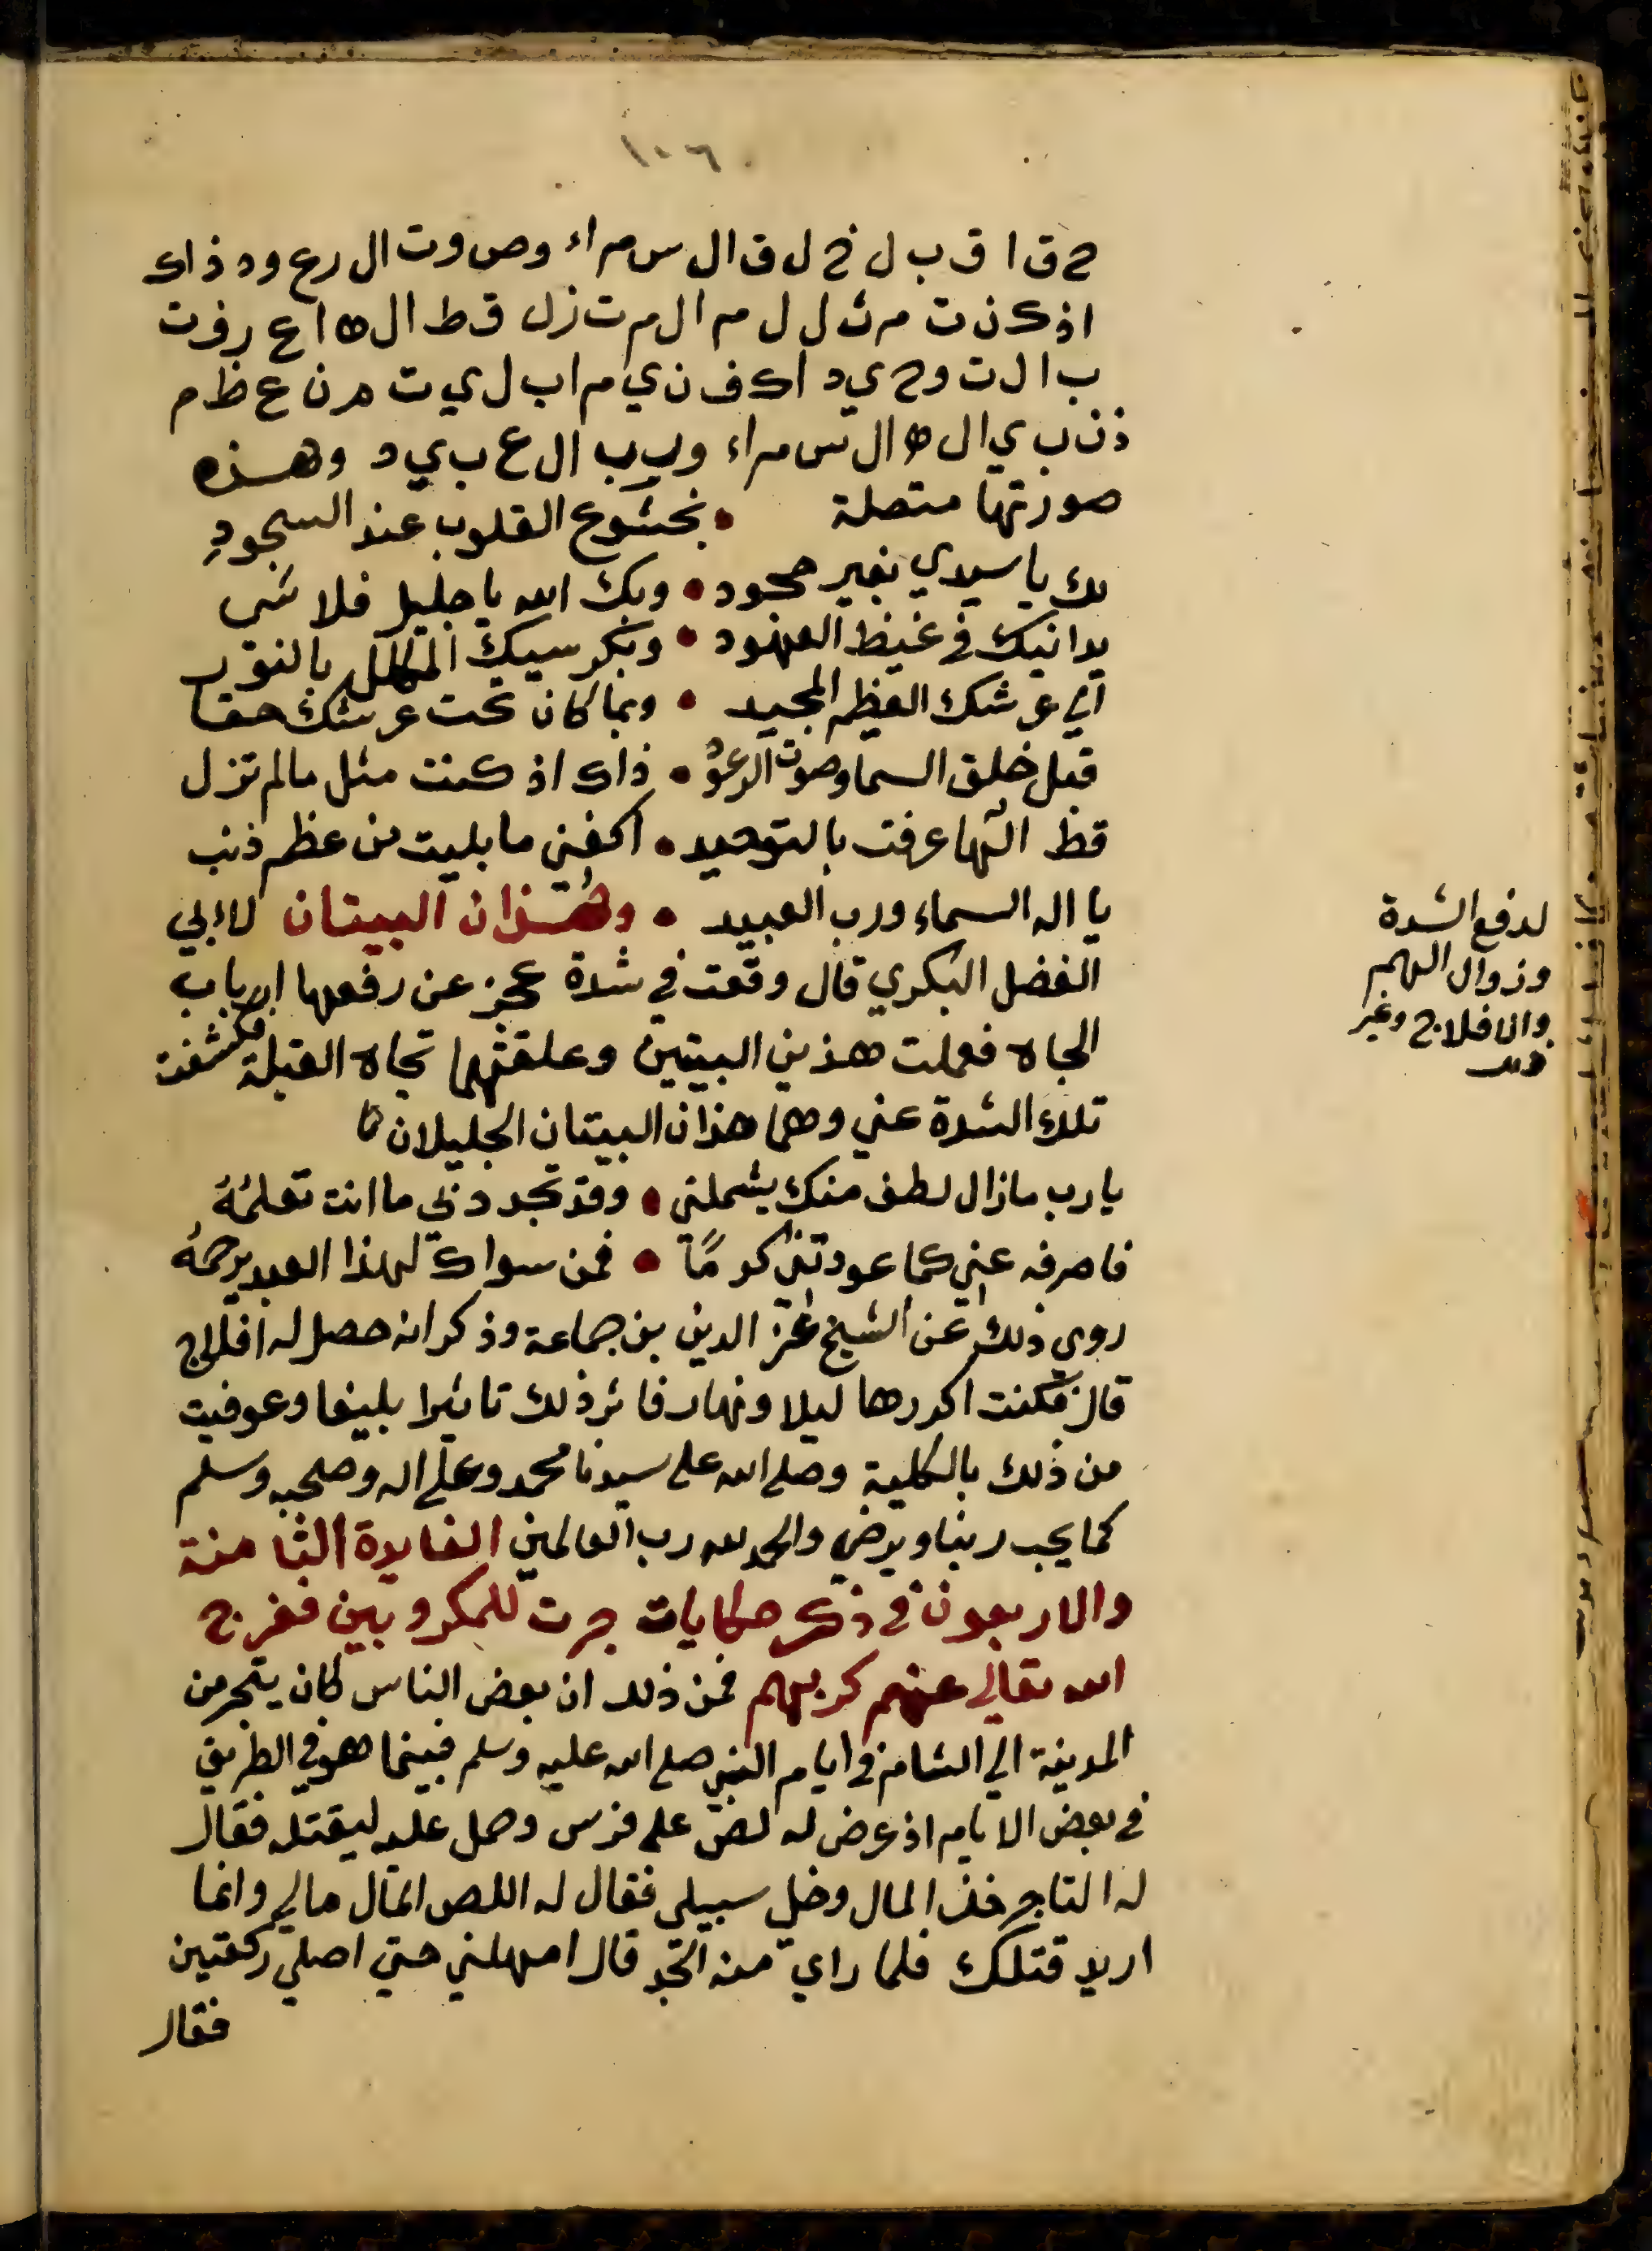 ١٠٦
ح ق ا ق ب ل خ ل ق ال س م اء وص وت ال رع ود ذاك
اذ ك ن ت م ث ل ل م ال م ت زل ق ط ال ه ا ع رف ت
ب ال ت وح ي د اك ف ن ي م اب ل ي ت م ن ع ظ م
ذن ب ي ال ه ال س م اء ور ب ال ع ب ي د وهذه
صورتها متصلة • بخشوع القلوب عند السجودِ
لك يا سيدي بغير جحود • وبك الله يا جليل فلا شي
يدانيك في غيظ العهود • وبكرسيك المكلل بالنور
الي عرشك العظيم المجيد • وبما كان تحت عرشك حقا
قبل خلق السما وصوت الرعود • ذاك اذ كنت مثل مالم تزل
قط الٓها عرفت بالتوحيد • اكفني ما بليت من عظم ذنب
يا اله السماء ورب العبيد • وهذان البيتان لاابي
الفضل البكري قال وقعت في شدة عجز عن رفعها ارباب
الجاه فعملت هذين البيتين وعلقتهما تجاه القبلة فكشفت
تلك الشدة عني وهما هذان البيتان الجليلان
يارب مازال لطف منك يشملني • وقد تجدد بي ما انت تعلمُهُ
فاصرفه عني كما عودتني كرمًا • فمن سواك لهذا العبد يرحمهُ
روي ذلك عن الشيخ عز الدين بن جماعة وذكر انه حصل له افلاج
قال فكنت اكررها ليلا ونهار فاثر ذلك تاثيرا بليغا وعوفيت
من ذلك بالكلية وصلى الله على سيدنا محمد وعلى اله وصحبه وسلم
كما يحب ربنا ويرضي والحمد لله رب العالمين الفايدة الثامنة
والاربعون في ذكر حكايات جرت للمكروبين ففرج
الله تعالى عنهم كربهم فمن ذلك ان بعض الناس كان يتجر من
المدينة الي الشام في ايام النبي صلى الله عليه وسلم فبينما هو في الطريق
في بعض الايام اذ عرض له لص على فرس وحمل عليه ليقتله فقال
له التاجر خذ المال وخل سبيلي فقال له اللص المال مالي وانما
اريد قتلك فلما راي منه الجد قال امهلني حتي اصلي ركعتين
فقال
لدفع الشدة
وزوال الهم
والافلاج وغير
ذلك